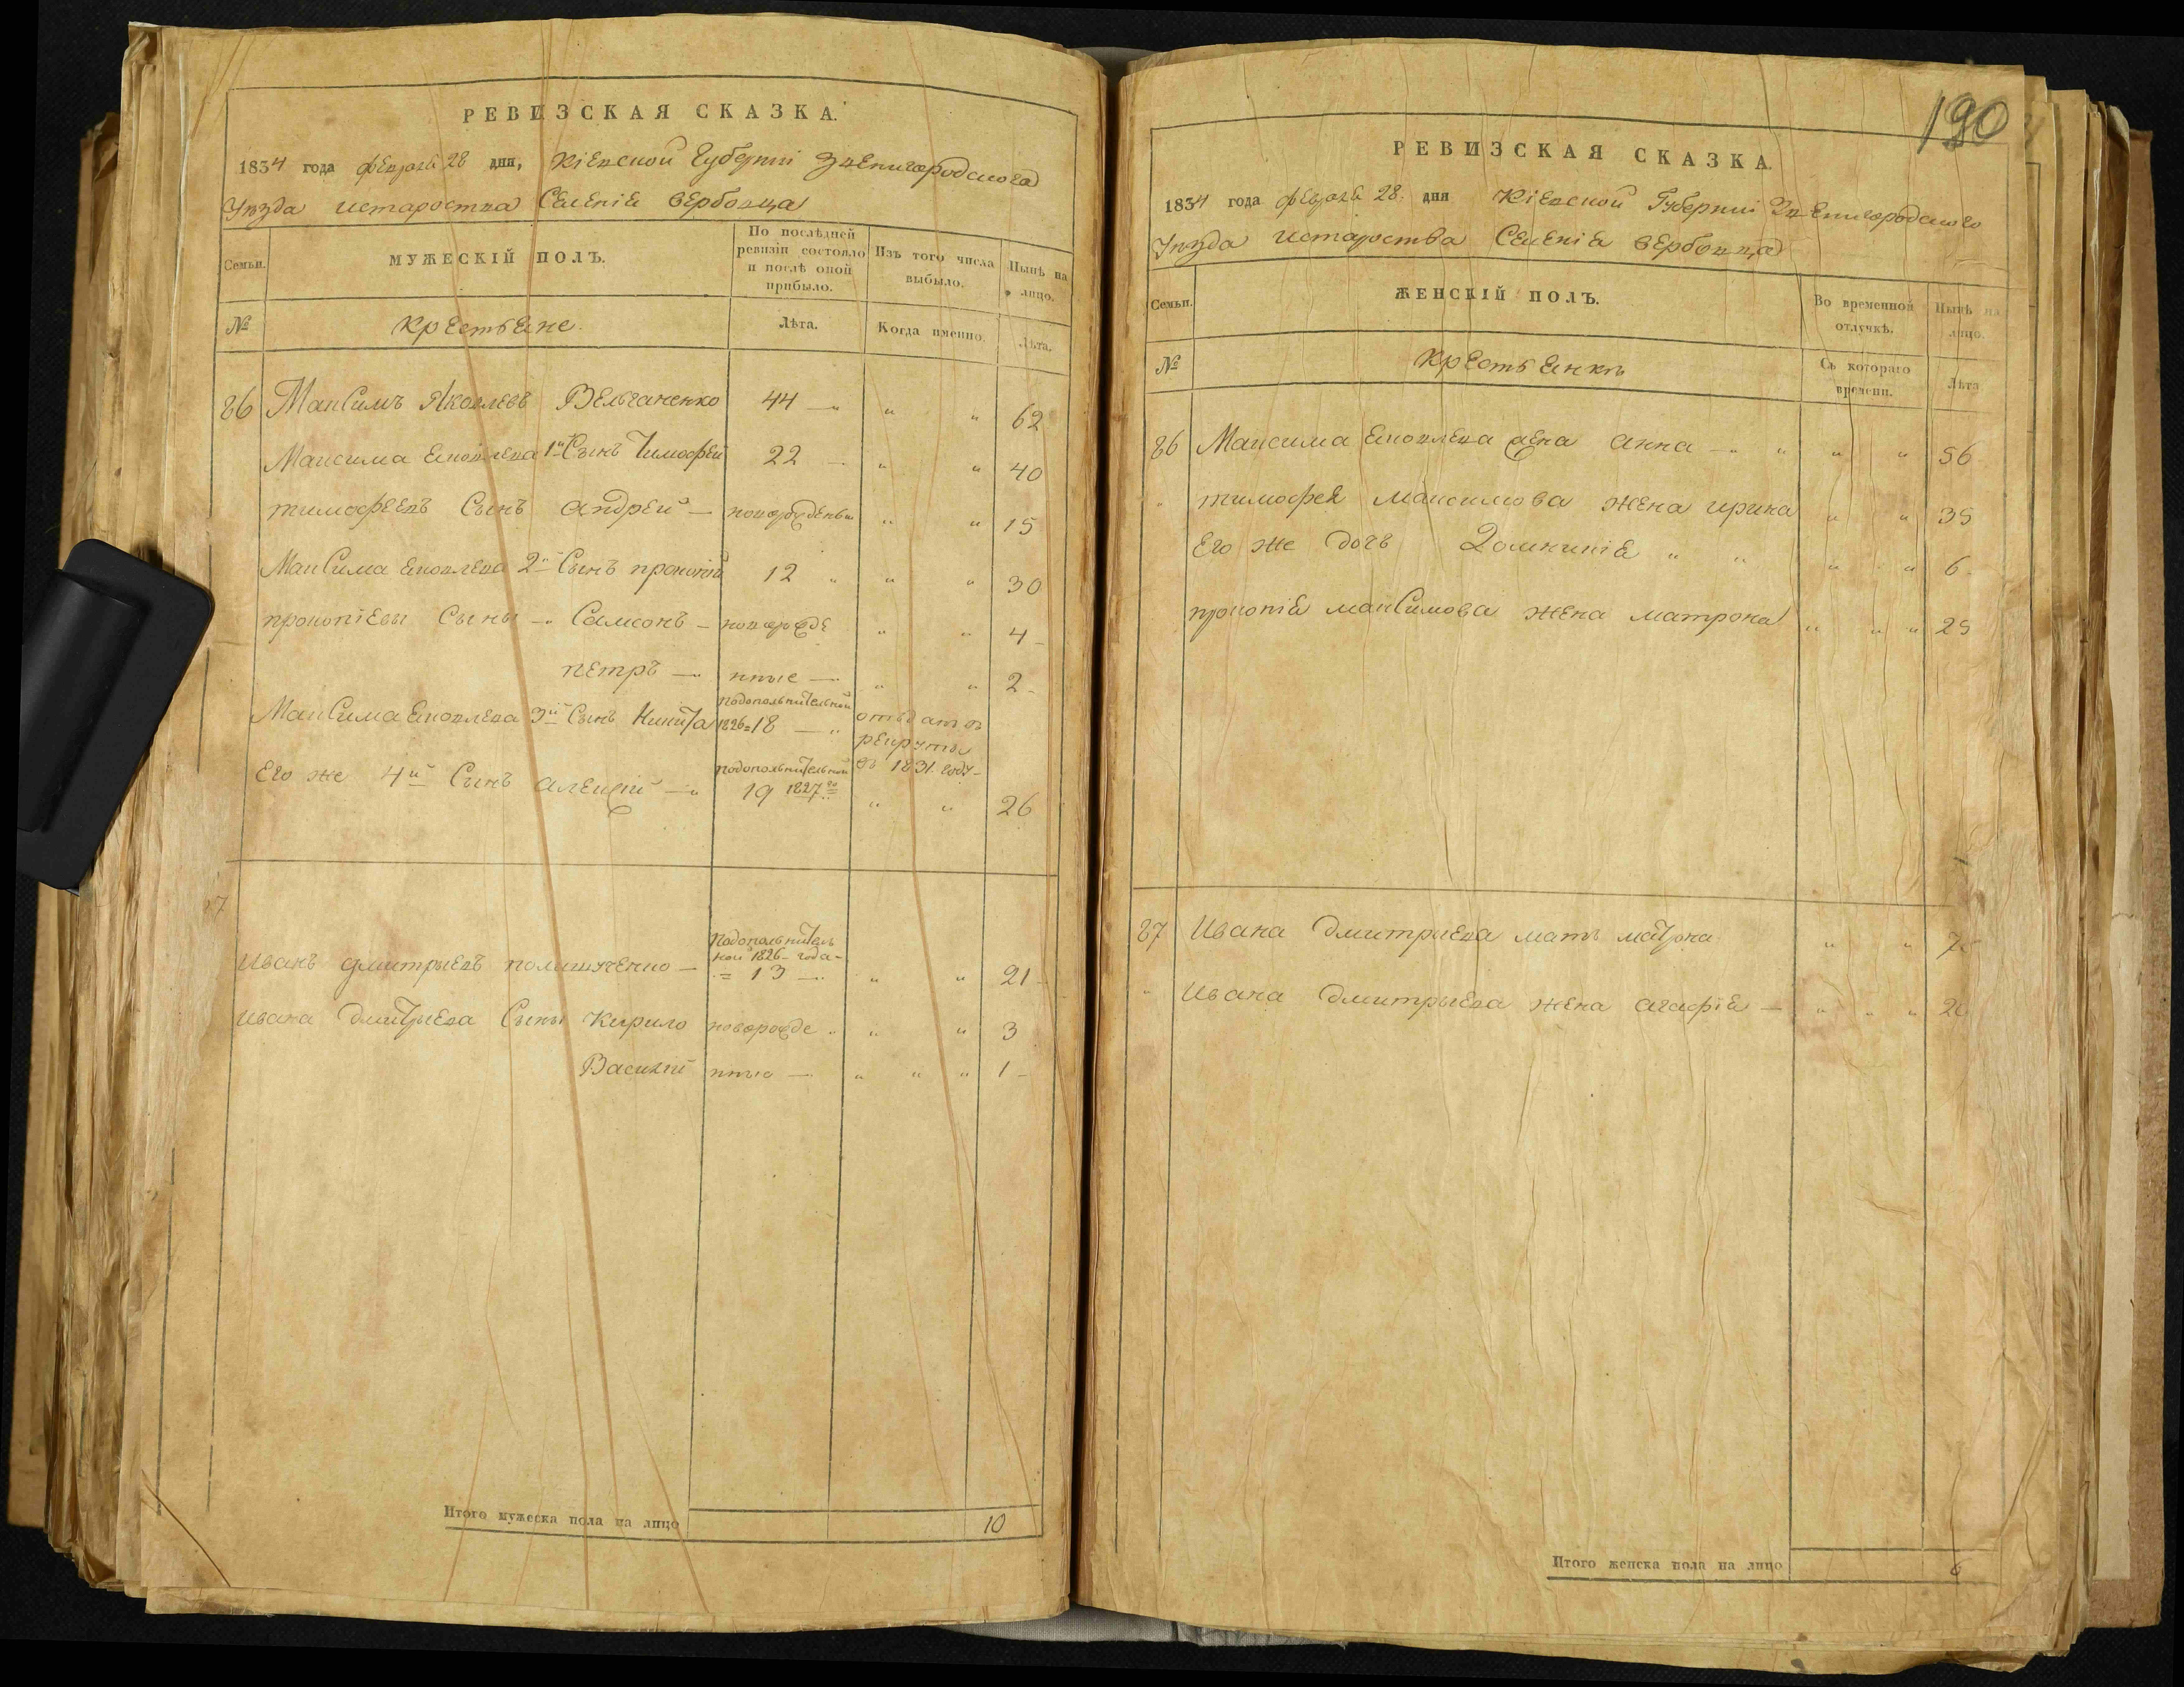 РЕВИЗСКАЯ СКАЗКА.
1834 года февраля 28 дня, Кіевской Губерніи Звенигородского
Уезда истароства Селеніе Вербовца
Семьи.
МУЖЕСКІЙ ПОЛЪ.
По послѣдней ревизіи состояло и послѣ оной прибыло.
Изъ того числа выбыло.
Нынѣ на лицо.
№
крестьяне.
Лѣта.
Когда именно.
Лѣта.
86 Максимъ Яковлевъ Вельчаненко 44 — „ „ „ 62
Максима Яковлева 1й Сынъ Тимофей 22 — „ „ 40
тимофеевъ Сынъ андрей — новорожденъ „ „ 15
Максима Яковлева 2й Сынъ прокопій 12 „ „ „ 30
прокопіевы Сыны — Самсонъ — новорожде „ „ 4 –
петръ — нные — „ „ 2 –
Максима Яковлева 3й Сынъ Никита подопольнительной 1826 = 18 — „ отъдатъ въ рекруты въ 1831 году –
Его же 4й Сынъ алексій — „ подопольнительной 19 1827го „ „ 26
87
Иванъ дмитрыевъ полищученко — Подопольнитель ной 1826 – года – = 13 — „ „ 21 –
Ивана дмитрыева Сыны Кирило новорожде „ „ „ 3
Василій нные — „ „ „ 1 –
Итого мужеска пола на лицо 10
190
РЕВИЗСКАЯ СКАЗКА.
1834 года февраля 28. дня Кіевской Губерніи Звенигородского
Уезда истароства Селеніе вербовца
Семьи.
ЖЕНСКІЙ ПОЛЪ.
Во временной отлучкѣ.
Нынѣ на лицо.
№
крестьянкъ
Съ котораго времени.
Лѣта
86 Максима Яковлева жена анна — „ „ „ „ 56
„ тимофея Максимова жена ирина „ „ 35
Его же дочь Домникія „ „ „ „ 6 –
прокопія максимова жена матрона „ „ „ 25
87 Ивана дмитриева мать матрона „ „
„ Ивана дмитрыева жена агафія — „ „ „ 20
Итого женска пола на лицо 6